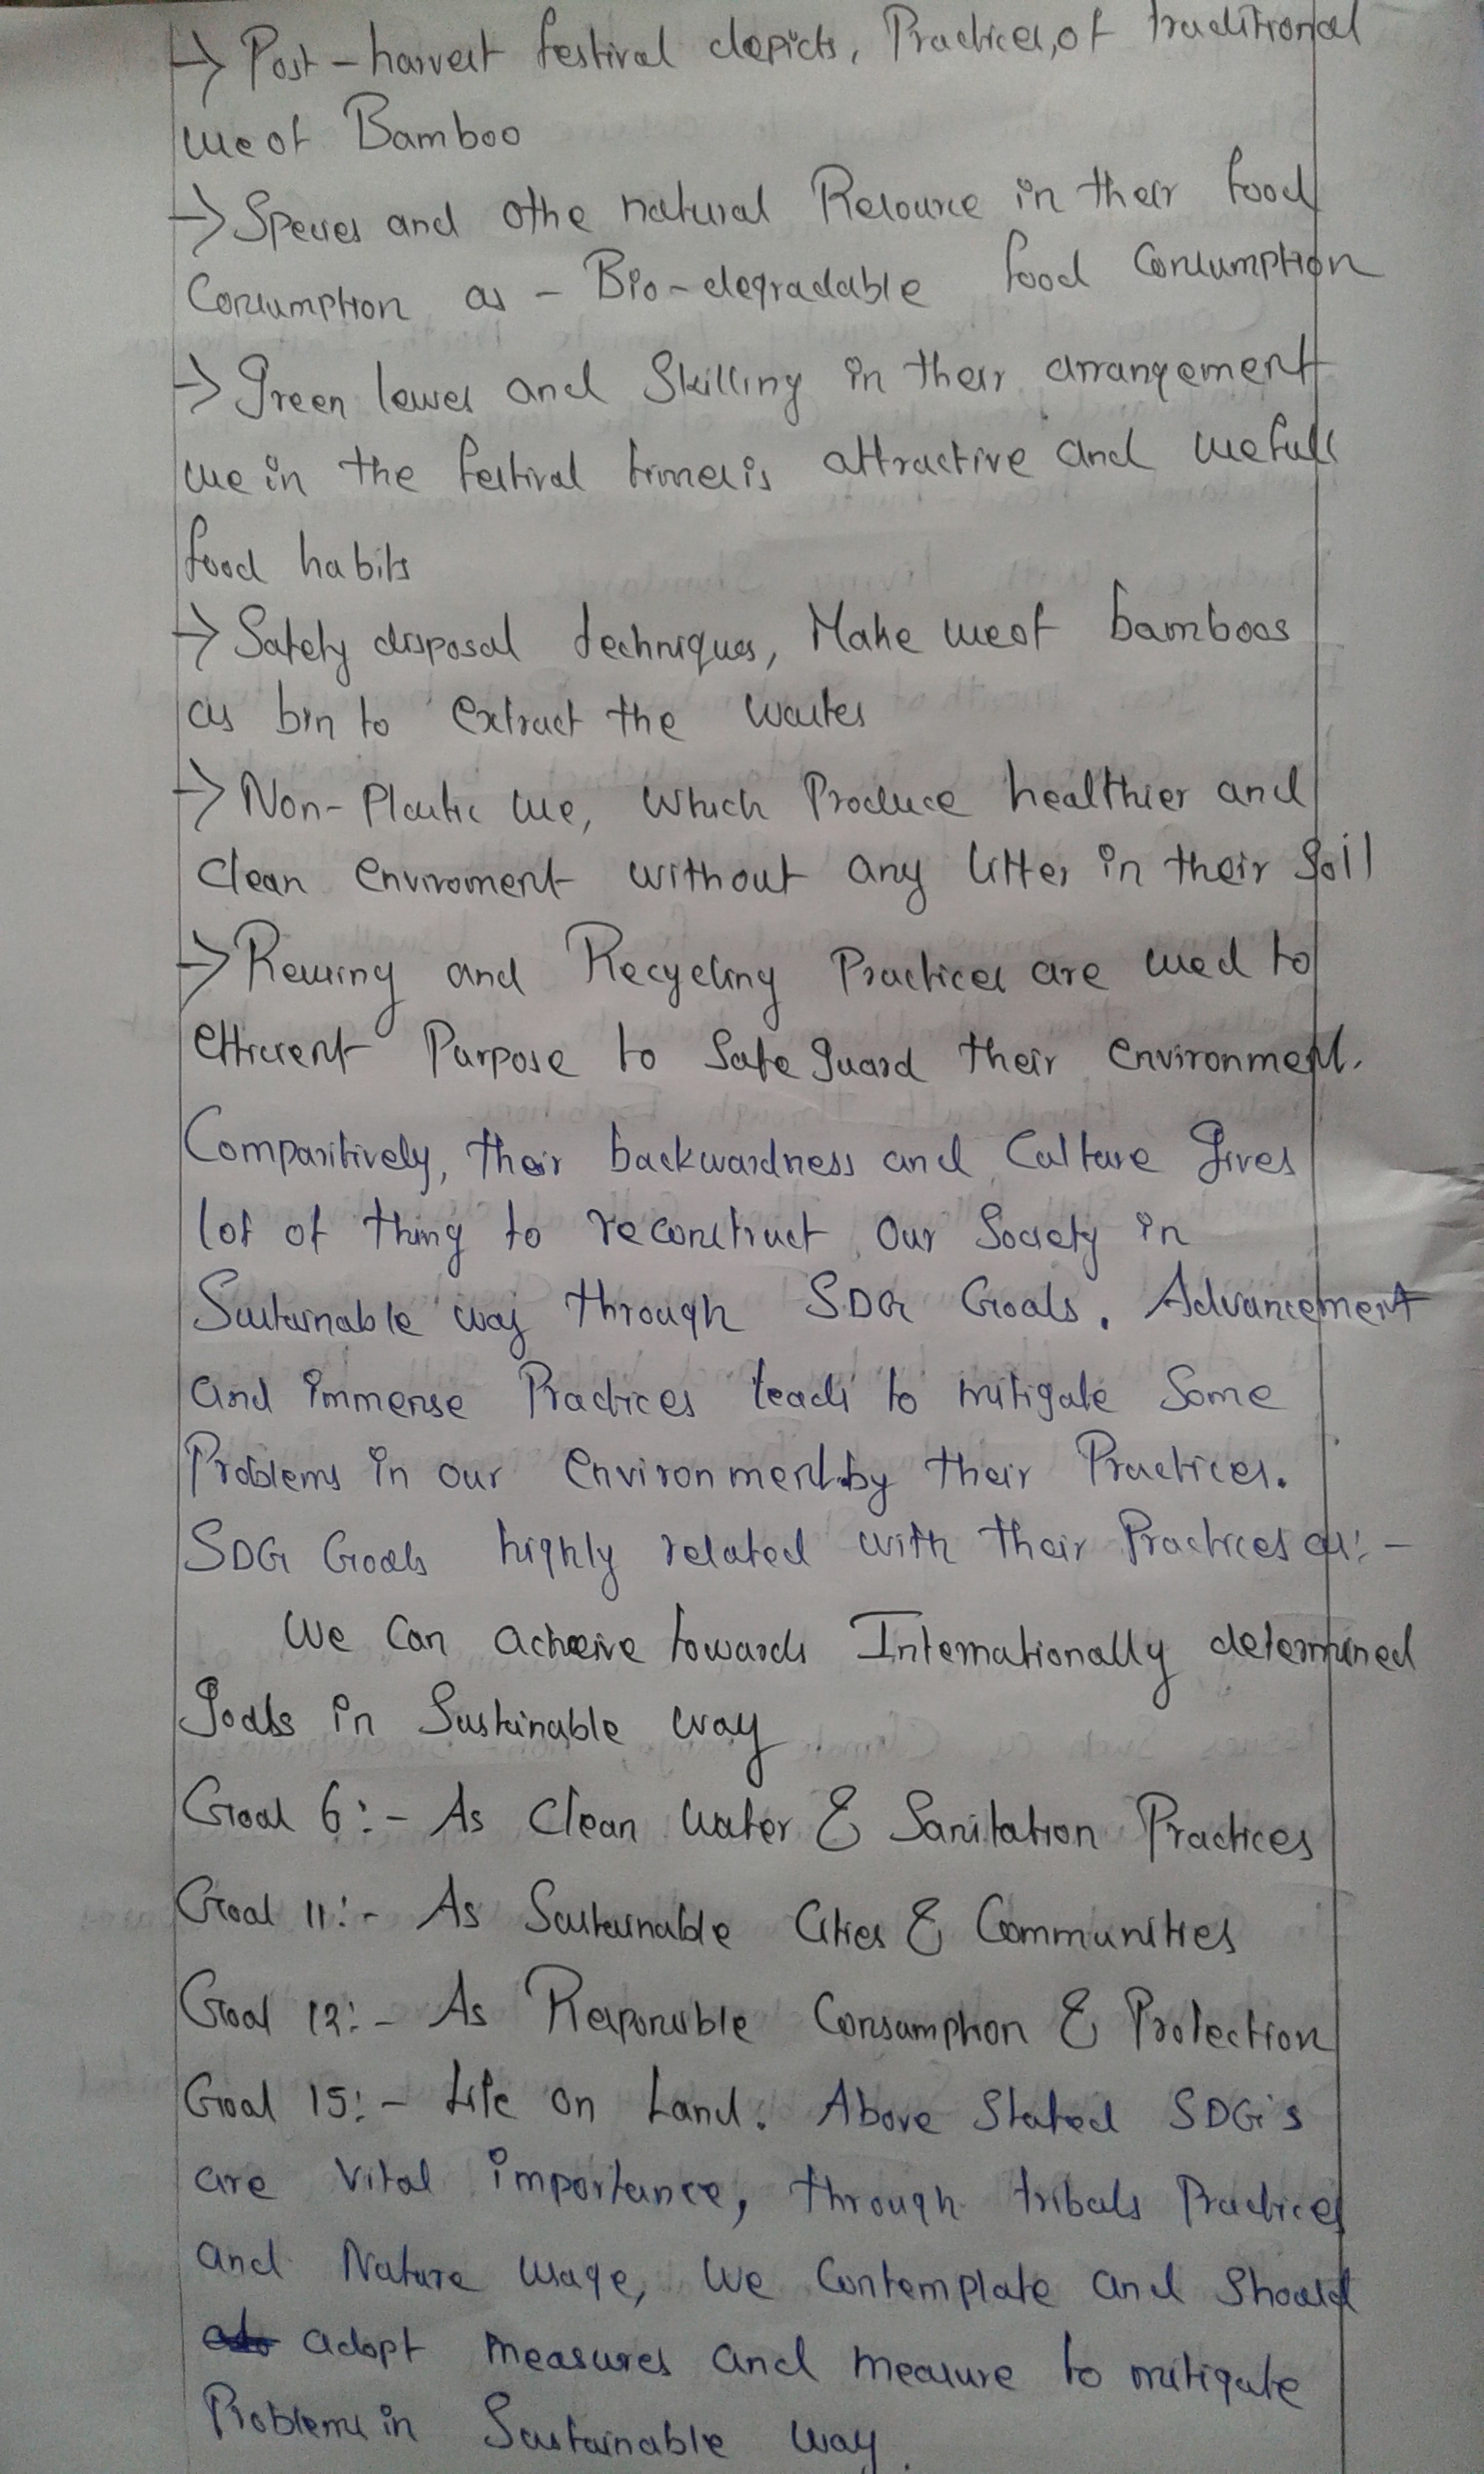 → Post-harvest festival depicts, Practices, of traditional
use of Bamboo
→ Species and othe natural Resource in their food
Consumption as - Bio-degradable food Consumption
→ Green leaves and Skilling in their arrangement
use in the festival times is attractive and usefull
food habits
→ Safety disposal techniques, Make use of bamboos
as bin to extract the wastes
→ Non-Plastic use, which Produce healthier and
clean enviroment without any litter in their soil
→ Reusing and Recycling Practices are used to
efficient Purpose to safe guard their environment.
Comparitively, their backwardness and Culture gives
lot of thing to reconstruct our Society in
Sustainable way through SDG Goals. Advancement
and immense Practices leads to mitigate Some
Problems in our environment by their Practices.
SDG Goals highly related with their Practices as:-
We Can acheive towards Internationally determined
goals in Sustainable way
Goal 6:- As Clean Water & Sanitation Practices
Goal 11:- As Sustainable Cities & Communities
Goal 12:- As Responsible Consumption & Protection
Goal 15:- Life on Land. Above Stated SDG's
are Vital importance, through tribals Practices
and Nature usage, We Contemplate and Should
adopt measures and measure to mitigate
Problems in Sustainable way.